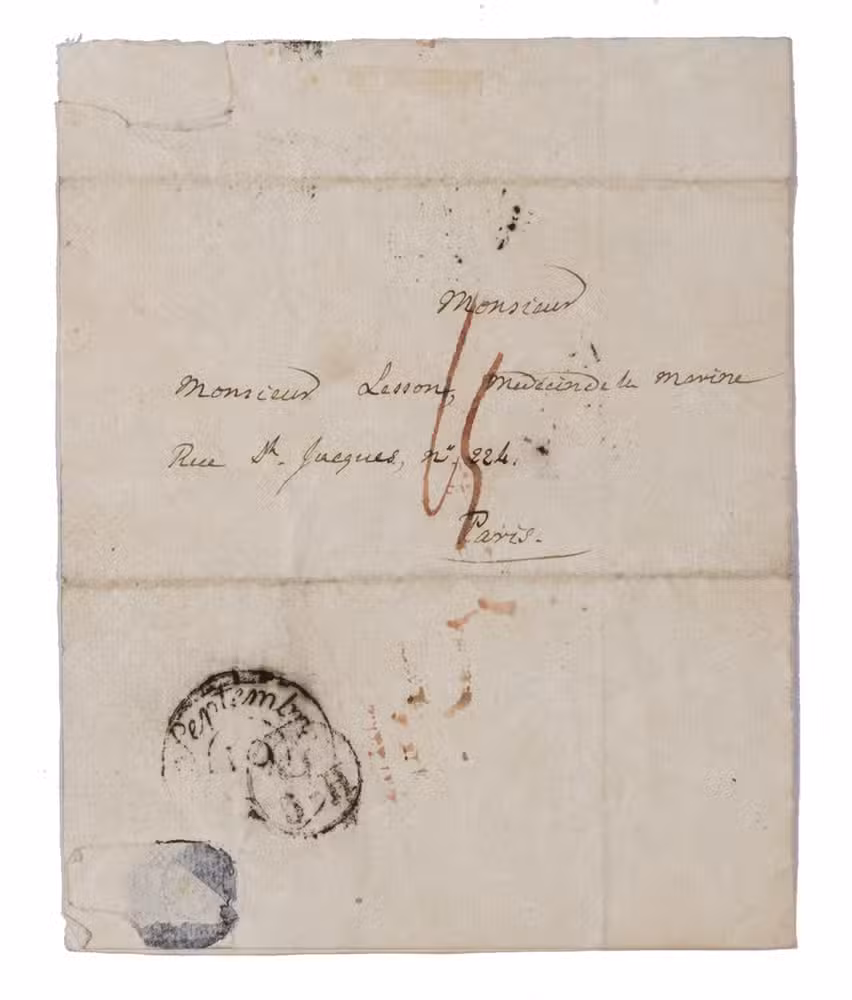 Monsieur
Monsieur Lesson, Medecin de la marine
Rue St. Jacques, n°. 224.
Paris.
Septembre